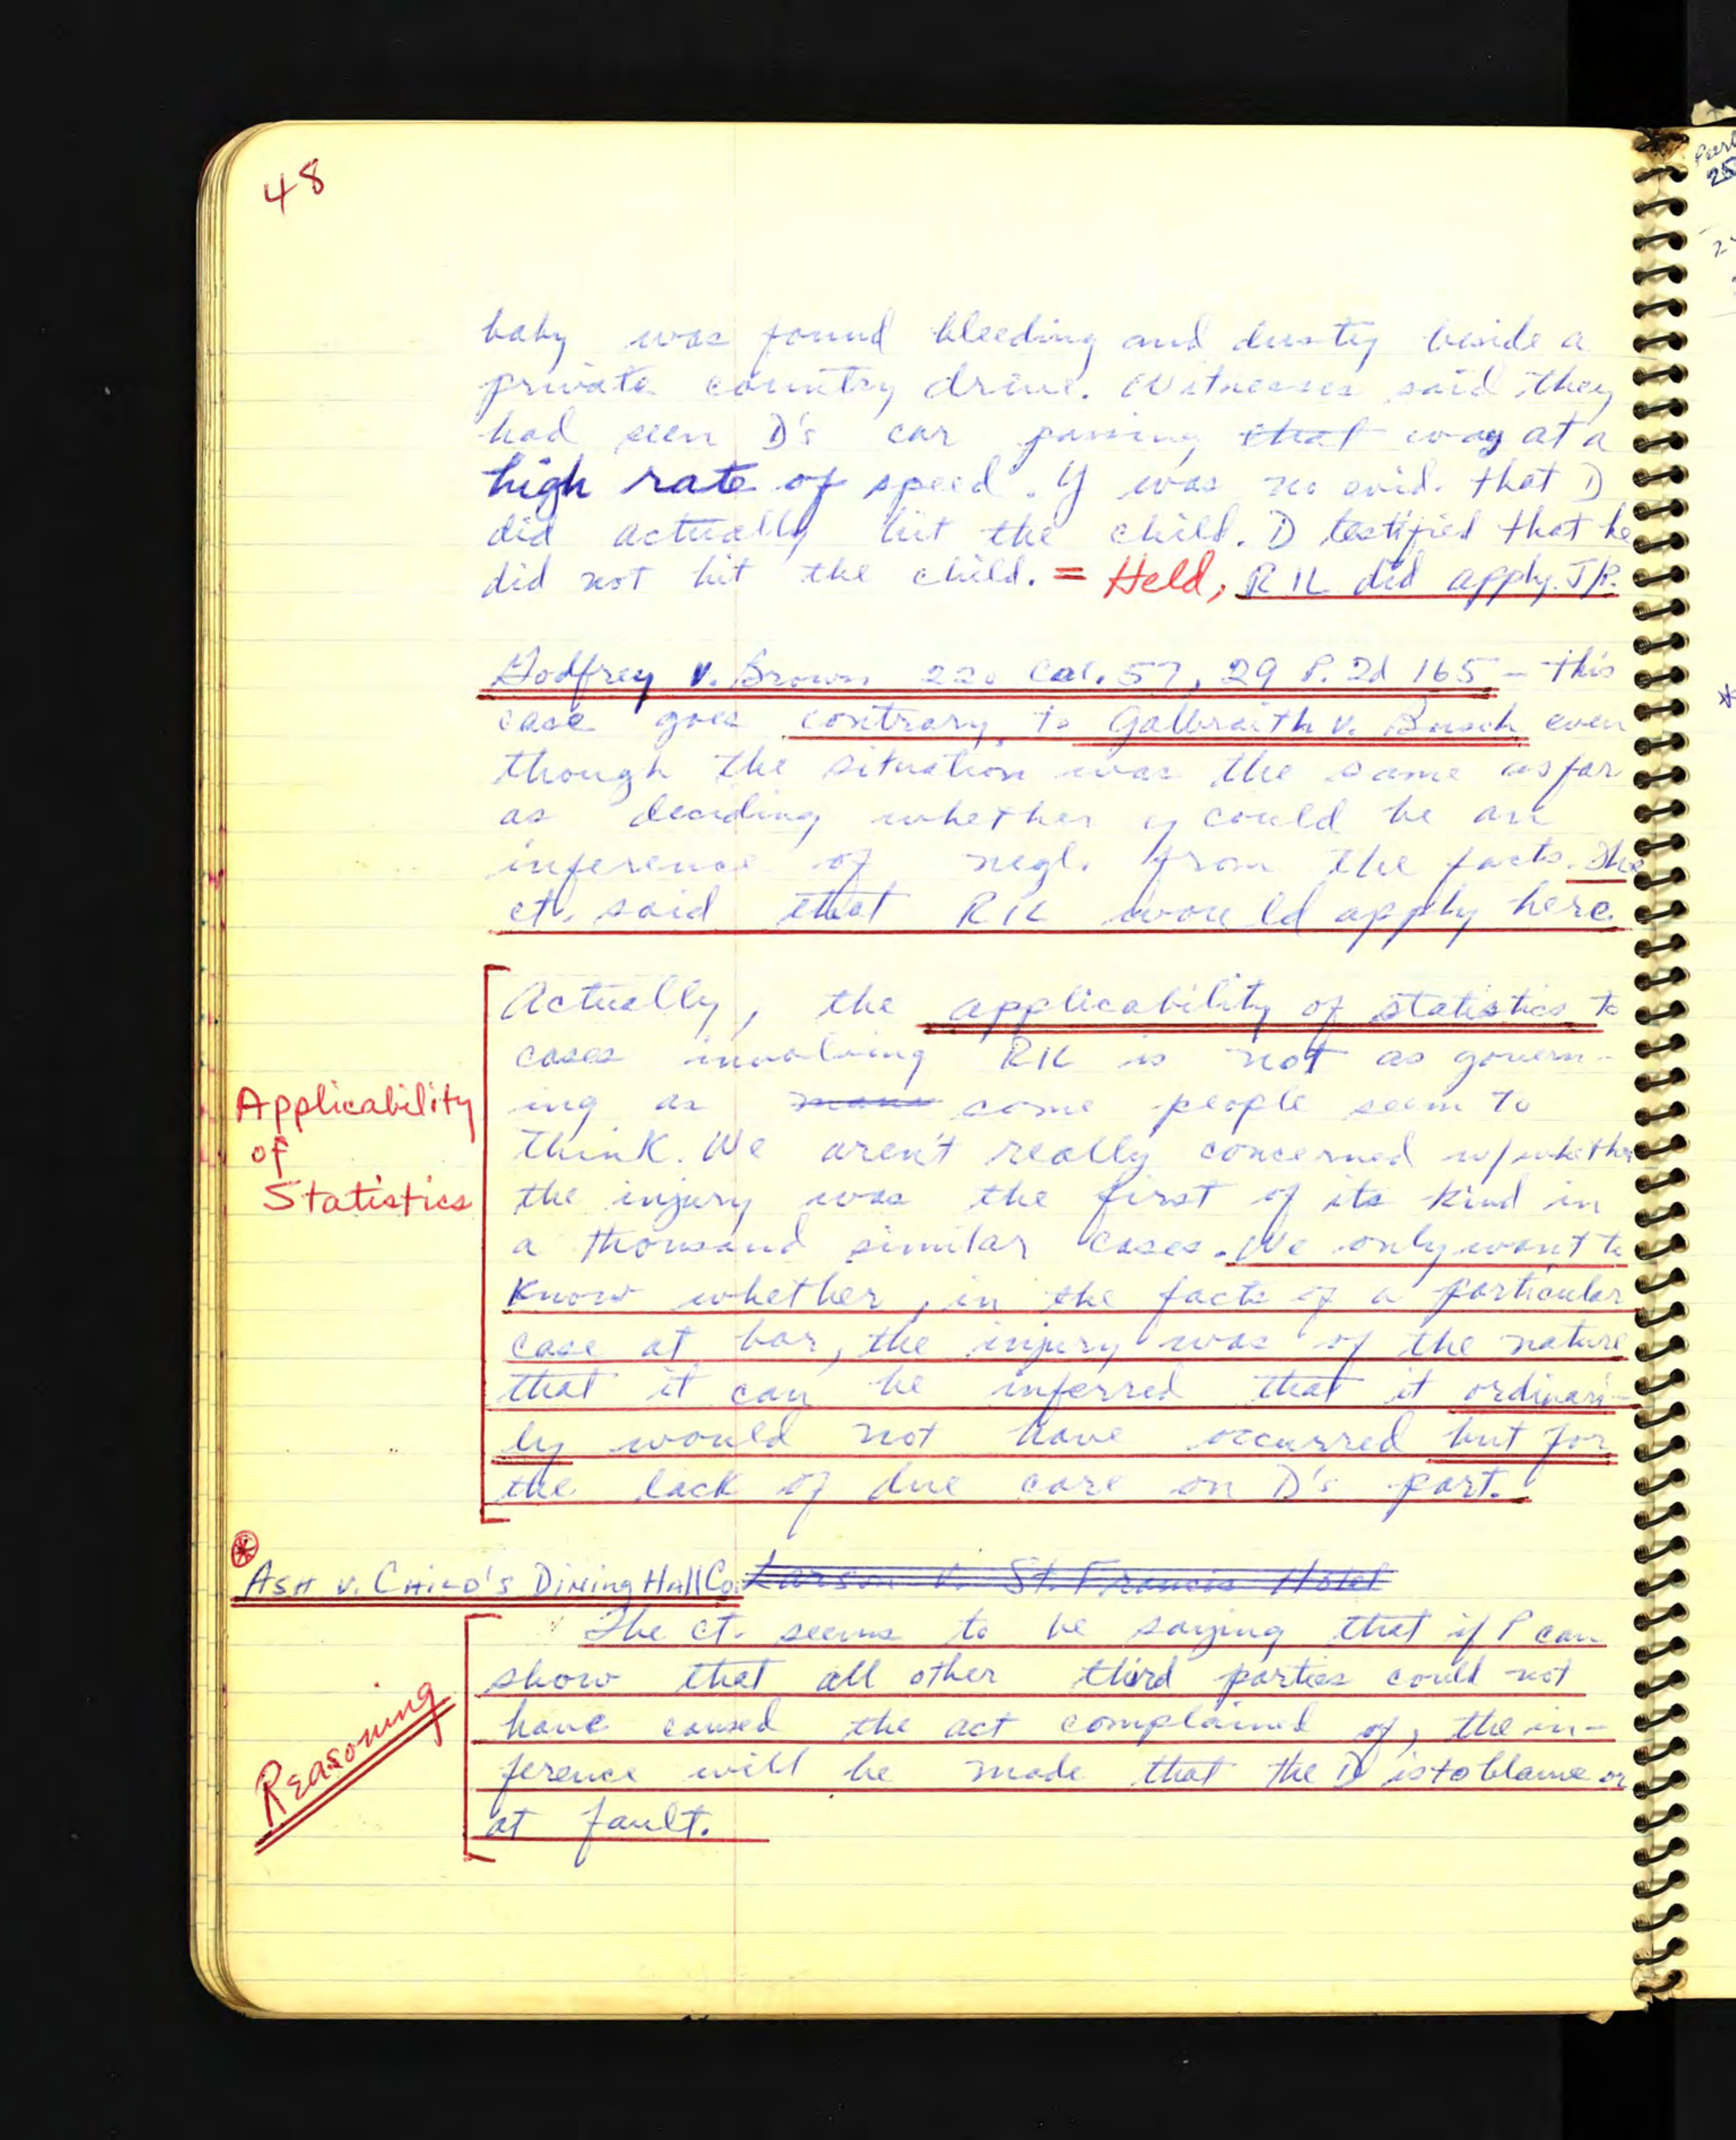 48
baby was found bleeding and dusty beside a
private country drive. Witnesses said they
had seen D's car passing that way at a
high rate of speed. y was no evid. that D
did actually hit the child. D testified that he
did not hit the child. = Held; RIL did apply. J/P.
Godfrey v. Brown 220 Cal. 57, 29 P. 2d 165 - this
case goes contrary to Galbraith v. Busch even
though the situation was the same as far
as deciding whether y could be an
inference of negl. from the facts. The
ct. said that RIL would apply here.
Actually, the applicability of statistics to
cases involving RIL is not as govern-
ing as some people seem to
think. We aren't really concerned w/ whether
the injury was the first of its kind in
a thousand similar cases. We only want to
know whether, in the facts of a particular
case at bar, the injury was of the nature
that it can be inferred that it ordinari-
ly would not have occurred but for
the lack of due care on D's part.
Applicability
of
Statistics
*
Ash v. Child's Dining Hall Co. Larson v. St. Francis Hotel
The ct. seems to be saying that if P can
show that all other third parties could not
have caused the act complained of, the in-
ference will be made that the D is to blame or
at fault.
Reasoning